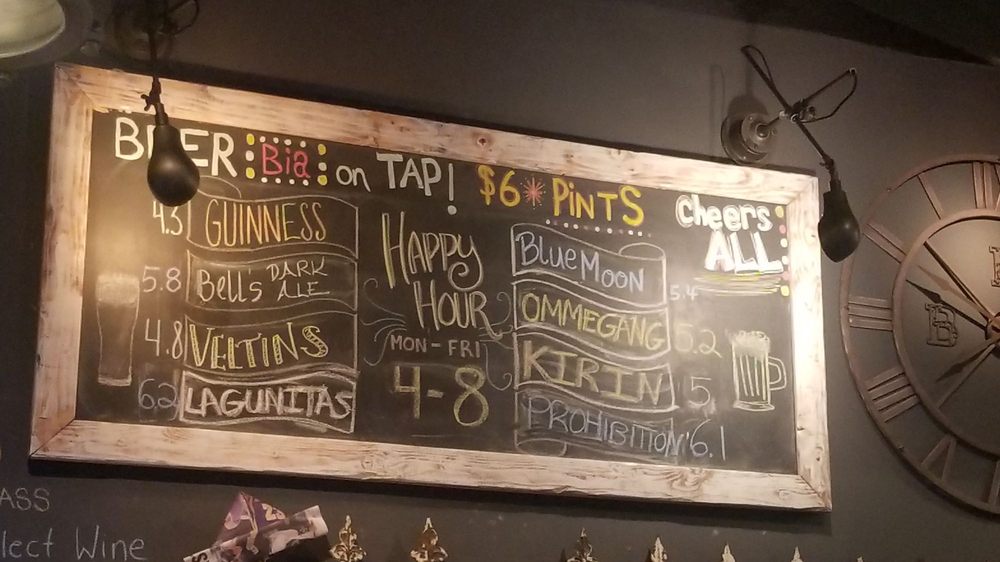 BEER Bia on TAP! $6 PiNTS
Cheers
ALL
4.3 GUINNESS
5.8 Bell's DARK ALE
4.8 VELTINS
6.2 LAGUNITAS
HAPPY
HOUR
MON-FRI
4-8
BLUE MOON 5.4
OMMEGANG 5.2
KIRIN 5
PROHIBITION 6.1
lect Wine